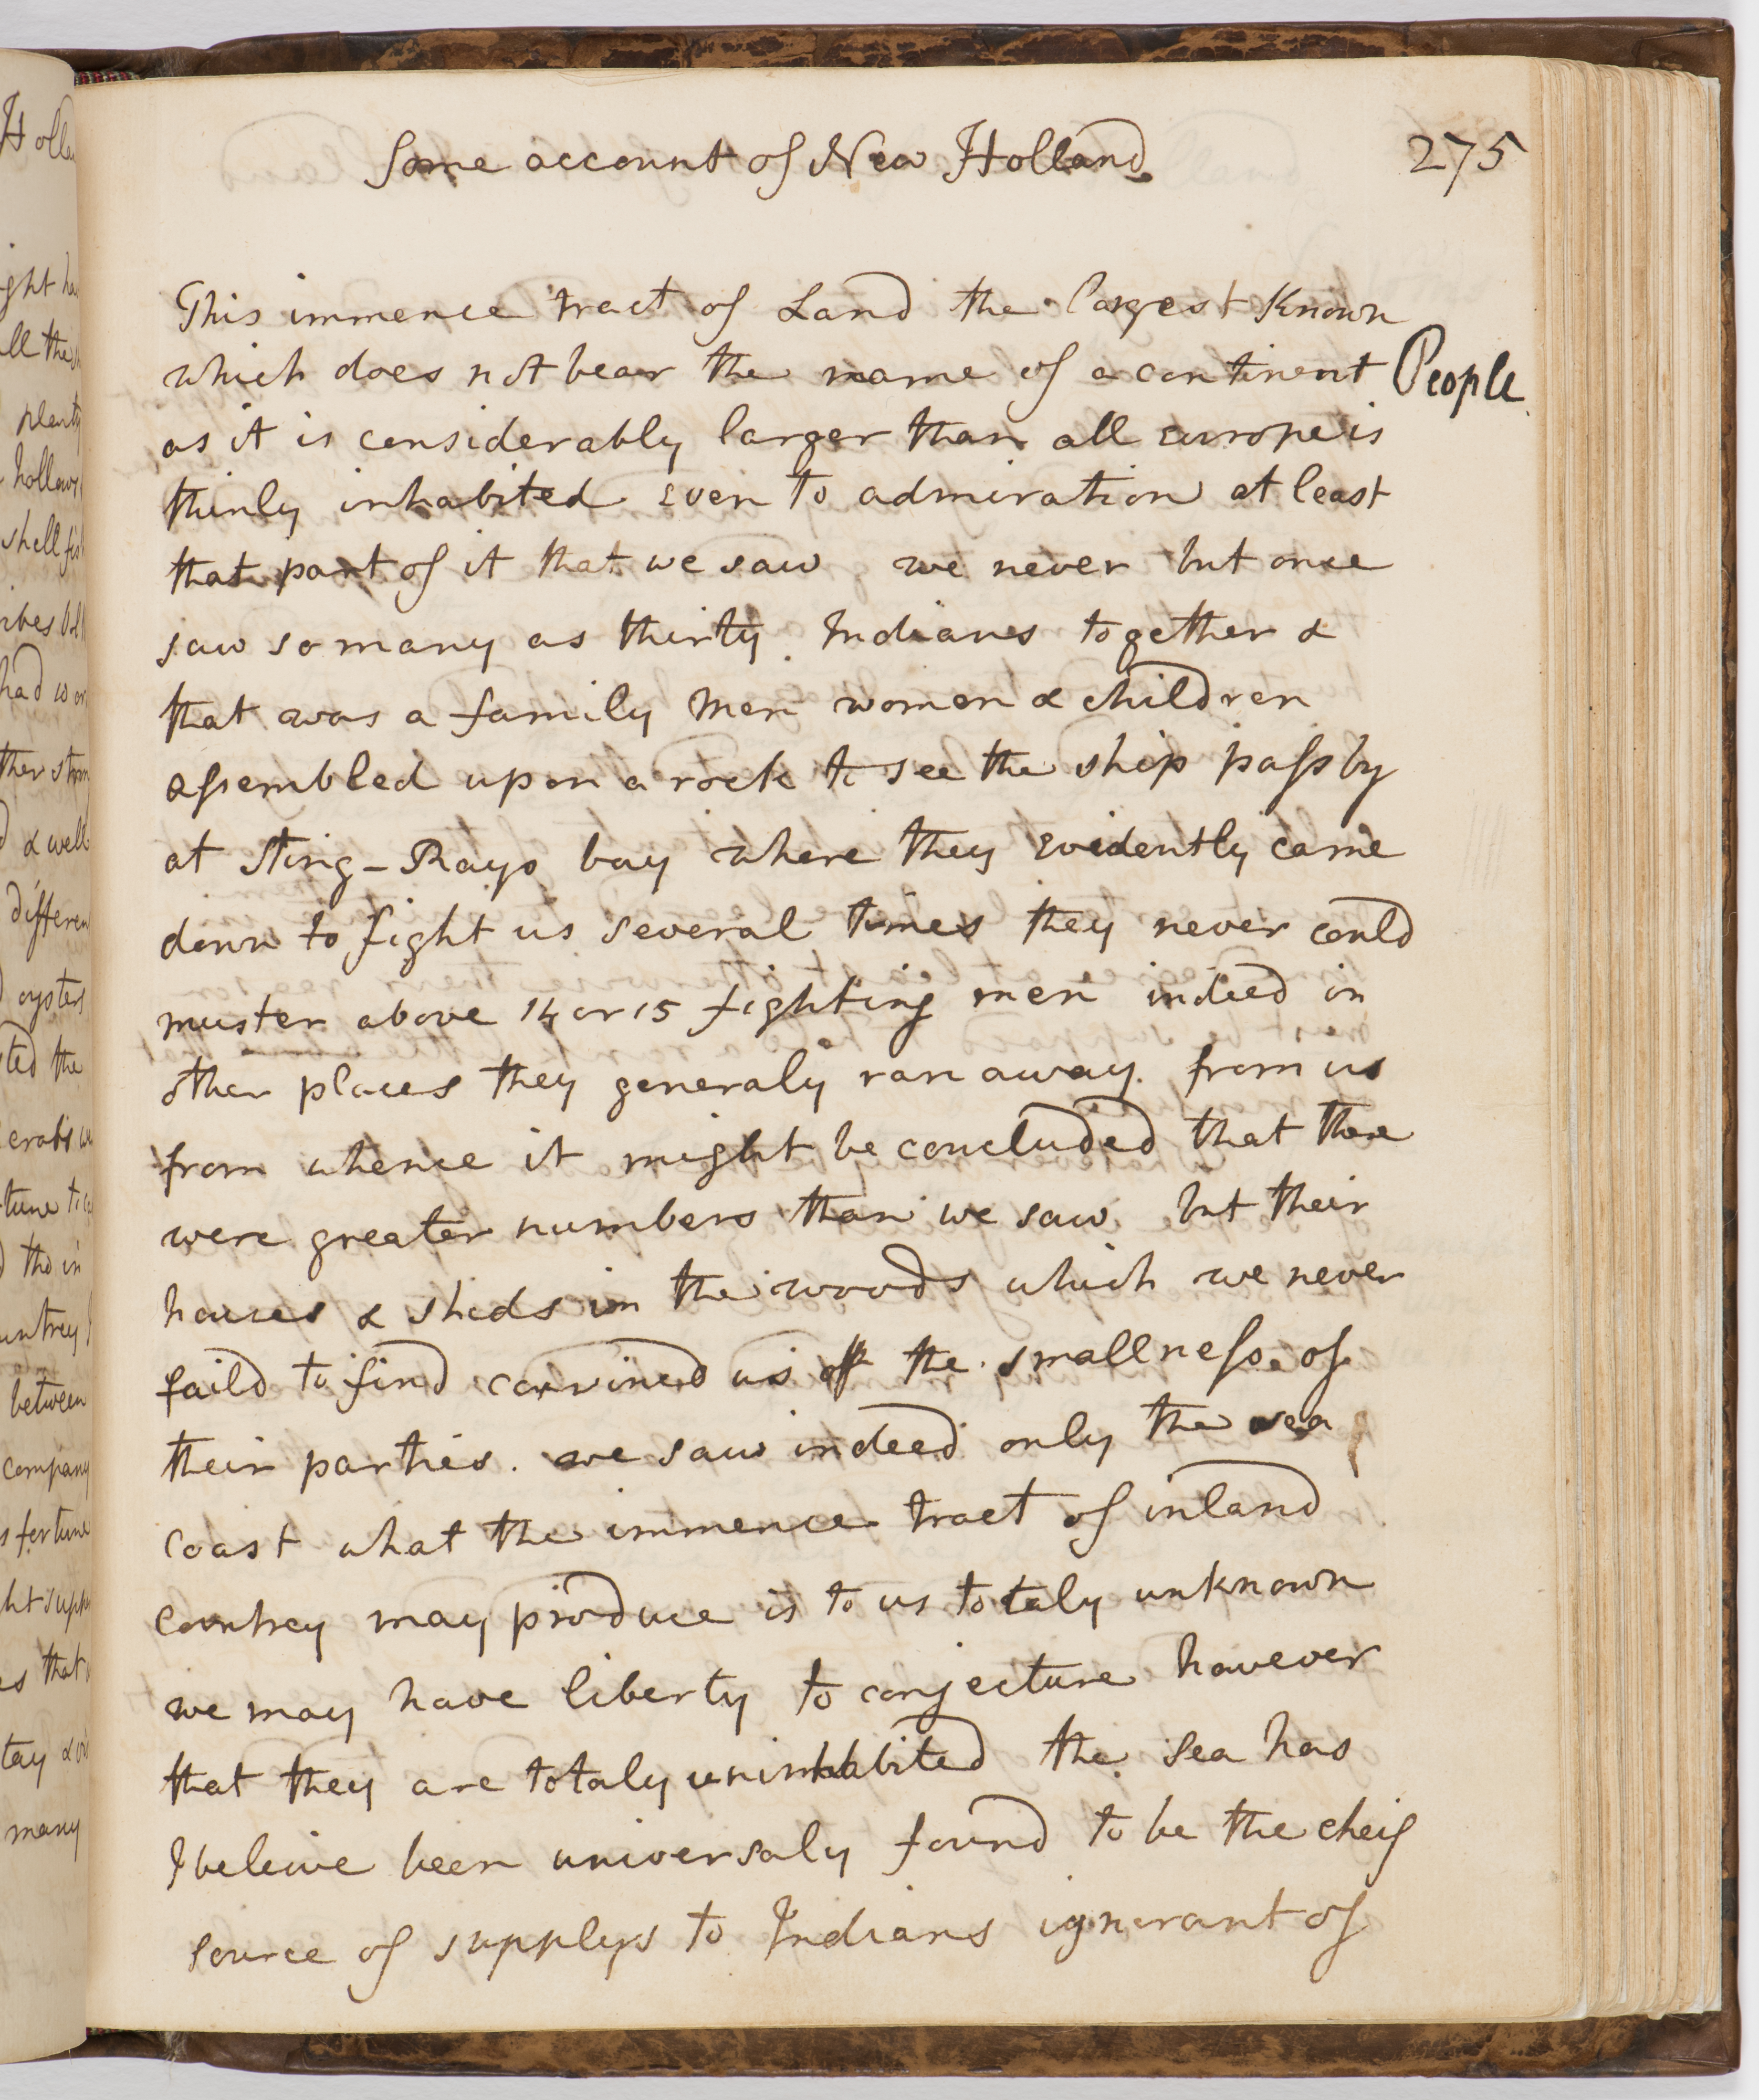 Some account of New Holland
275
This immence tract of Land the largest known
which does not bear the name of a continent
People
as it is considerably larger than all europe is
thinly inhabited even to admiration at least
that part of it that we saw we never but once
saw so many as thirty Indians together &
that was a family men women & children
assembled upon a rock to see the ship pass by
at Sting-Rays bay where they evidently came
down to fight us several times they never could
muster above 14 or 15 fighting men indeed in
other places they generaly ran away from us
from whence it might be concluded that there
were greater numbers than we saw but their
houses & sheds in the woods which we never
faild to find convincd us of the smallness of
their parties. we saw indeed only the sea
coast what the immence tract of inland
countrey may produce is to us totaly unknown
we may have liberty to conjecture however
that they are totaly uninhabited the sea has
I beleive been universaly found to be the cheif
source of supplys to Indians ignorant of
ght
ll the
plenty
hollows
shell fish
had
& well
differen
oysters
ted the
crabs
the in
between
company
fortune
that
many